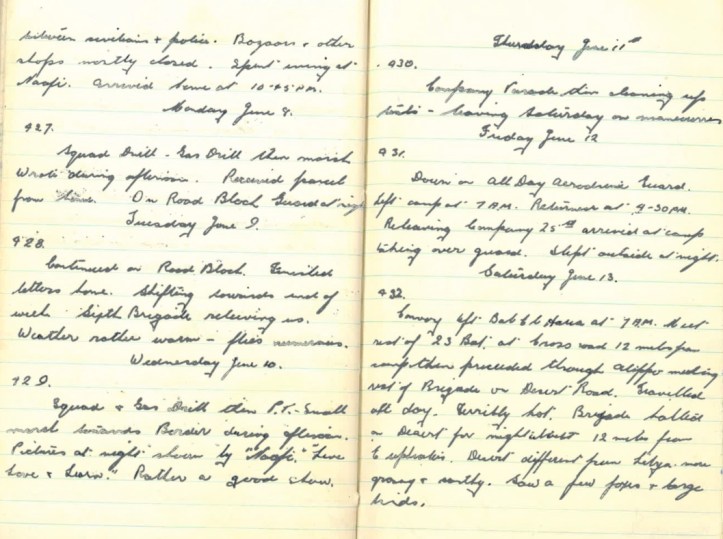 between civilians & police. Bazaars & other
shops mostly closed. Spent evening at
Naafi. Arrived home at 10-45 P.M.
Monday June 8.
927.
Squad Drill - Gas Drill then march
Wrote during afternoon. Received parcel
from Home. On Road Block Guard at night
Tuesday June 9.
928.
Continued on Road Block. Received
letters home. Shifting towards end of
week Sixth Brigade relieving us.
Weather rather warm - flies numerous.
Wednesday June 10.
929.
Squad & Gas Drill then P.T. Small
march towards Border during afternoon.
Pictures at night shown by "Naafi." "Live
Love & Learn." Rather a good show.
Thursday June 11th
930.
Company Parade then cleaning up
tents - leaving Saturday on manoeuvres
Friday June 12
931.
Down on All Day Aerodrome Guard.
Left camp at 7 A.M. Returned at 9-30 P.M.
Relieving Company 25th arrived at camp
taking over guard. Slept outside at night.
Saturday June 13.
932.
Convoy left Bab El Hawa at 7 A.M. Meet
rest of "23 Bat." at Cross road 12 miles from
camp then proceeded through Aleppo meeting
rest of Brigade on Desert Road. Travelled
all day. Terribly hot. Brigade halted
in Desert for night about 12 miles from
Euphrates. Desert different from Libya. more
grassy & earthy. Saw a few foxes & large
birds.